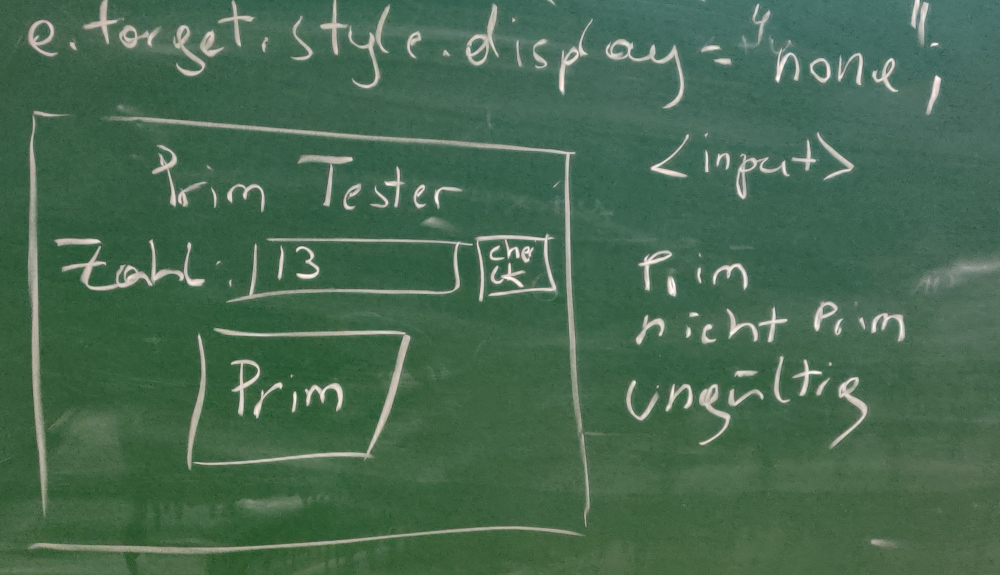 e.target.style.display = "none";
<input>
Prim Tester
Zahl: 13 check
Prim
Prim
nicht Prim
ungültig